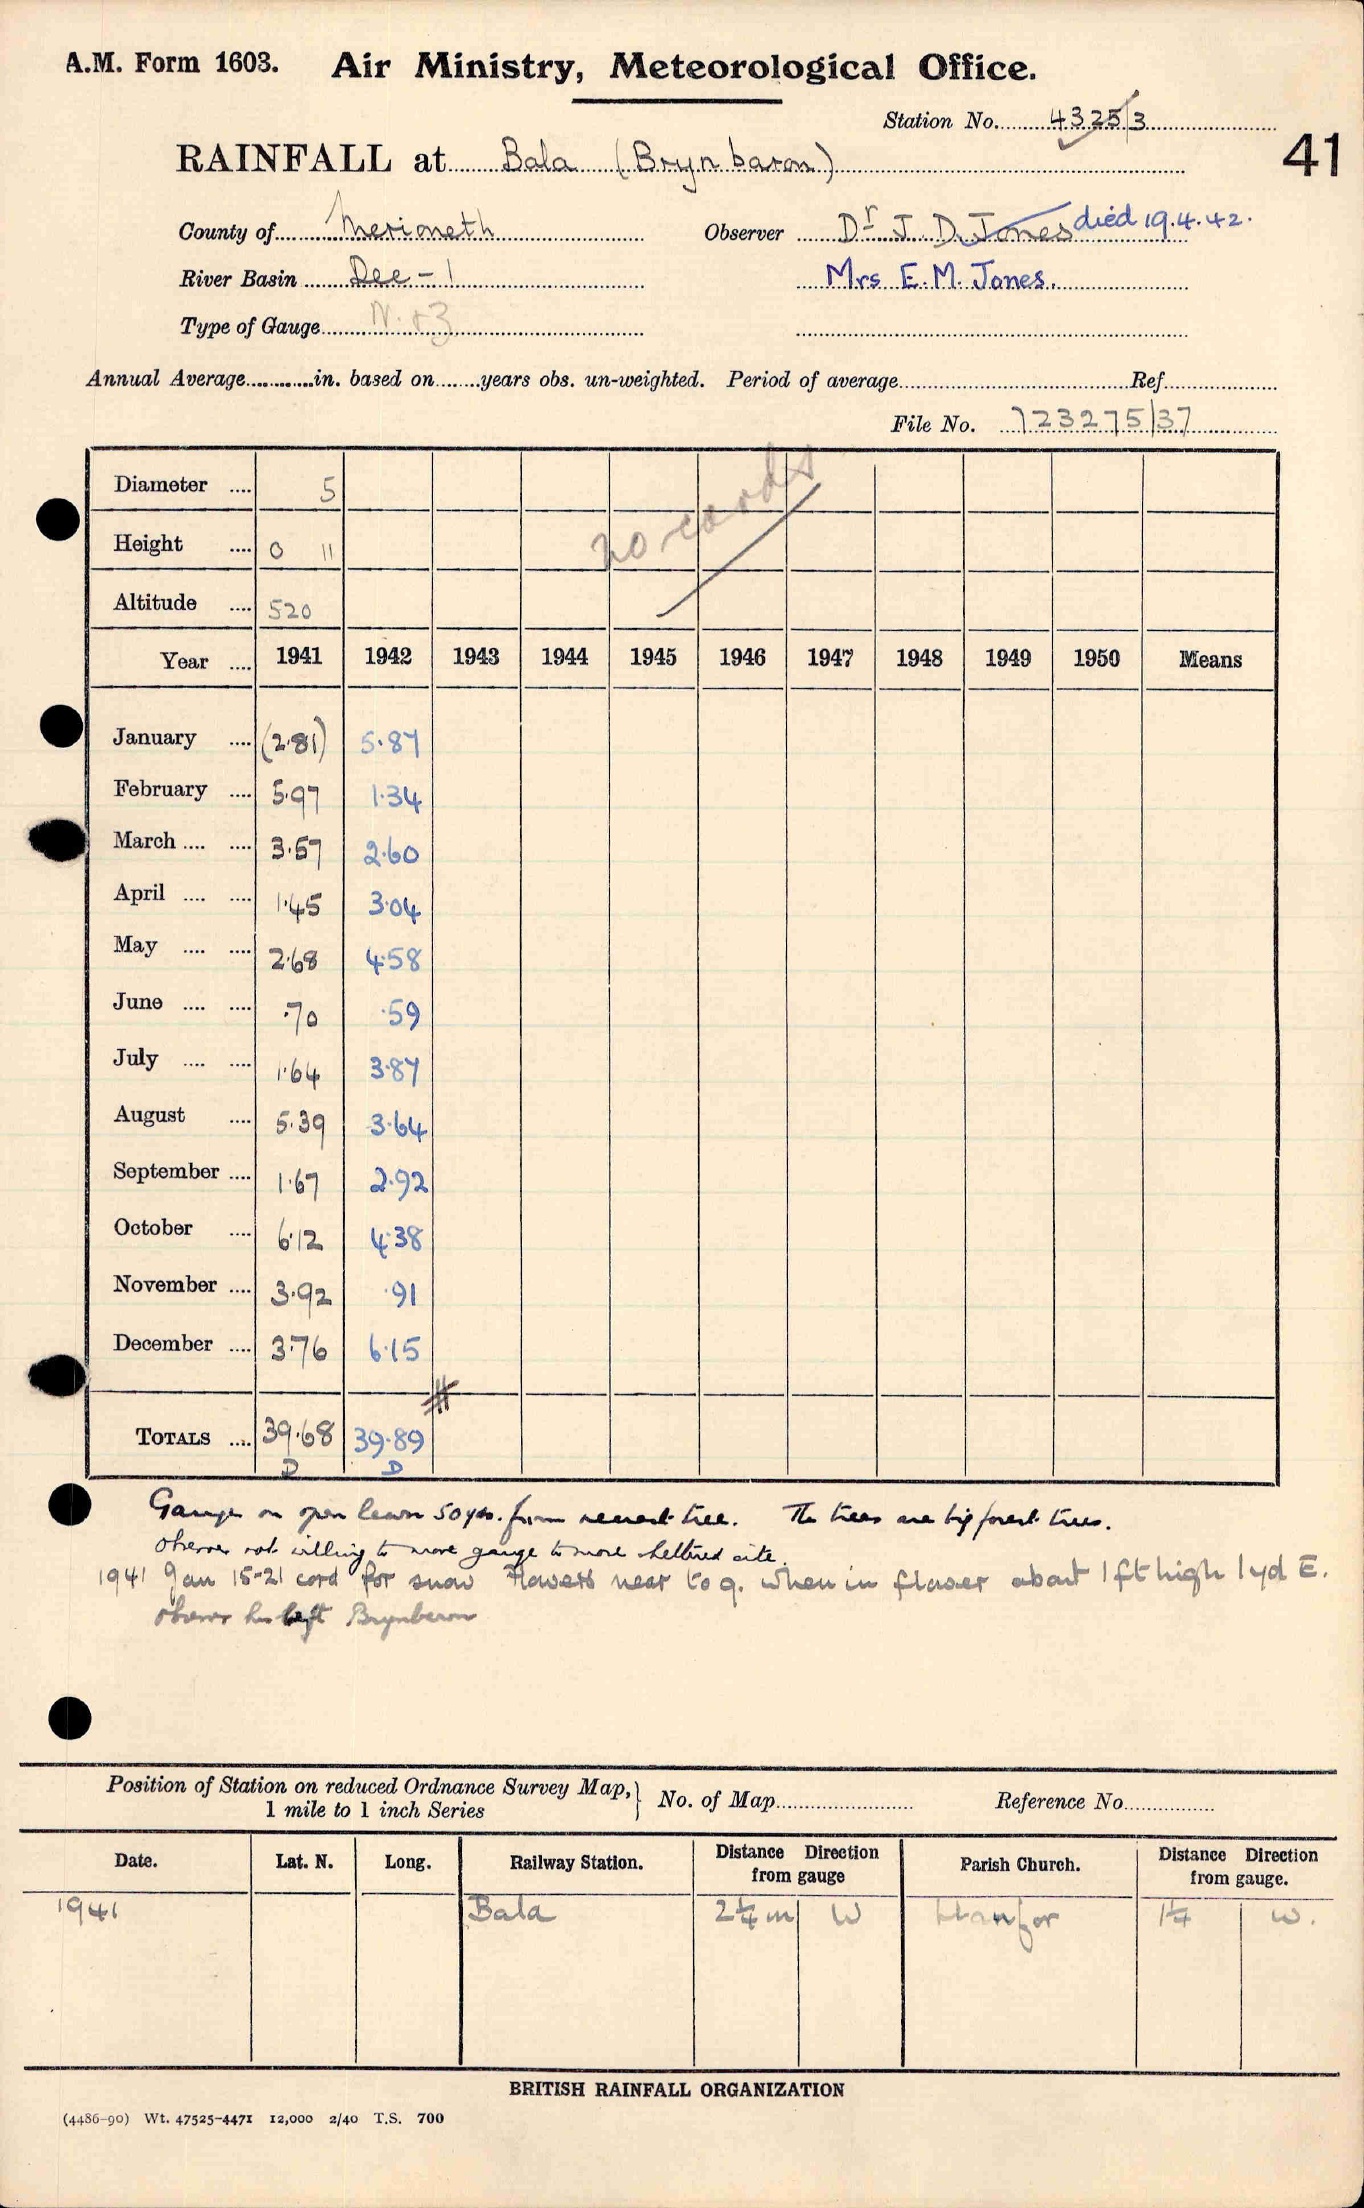 A.M. Form 1603. Air Ministry, Meteorological Office.
Station No. 4325/3
41
RAINFALL at Bala (Brynbaron)
County of Merioneth Observer Dr J. D. Jones died 19.4.42.
River Basin Dee - 1 Mrs E. M. Jones.
Type of Gauge
Annual Average in. based on years obs. un-weighted. Period of average Ref.
File No. 723275/37
Diameter .... 5
Height .... 0 11
Altitude .... 520
no cards
Year .... 1941 1942 1943 1944 1945 1946 1947 1948 1949 1950 Means
January .... (2.81) 5.87
February .... 5.97 1.34
March .... .... 3.57 2.60
April .... .... 1.45 3.04
May .... .... 2.68 4.58
June .... .... .70 .59
July .... .... 1.64 3.87
August .... 5.39 3.64
September .... 1.67 2.92
October .... 6.12 4.38
November .... 3.92 .91
December .... 3.76 6.15
TOTALS .... 39.68 39.89
D D
Gauge on open lawn 50 yds. from nearest tree. The trees are big forest trees.
Observer not willing to move gauge to more sheltered site.
1941 Jan 15-21 cord for snow Flowers near to g. when in flower about 1 ft high 1 yd E.
Observer has left Brynbaron
Position of Station on reduced Ordnance Survey Map, } No. of Map Reference No.
1 mile to 1 inch Series
Date. Lat. N. Long. Railway Station. Distance Direction from gauge Parish Church. Distance Direction from gauge.
1941 Bala 2¼ m W Llanfor 1¼ W.
BRITISH RAINFALL ORGANIZATION
(4486-90) Wt. 47525-4471 12,000 2/40 T.S. 700